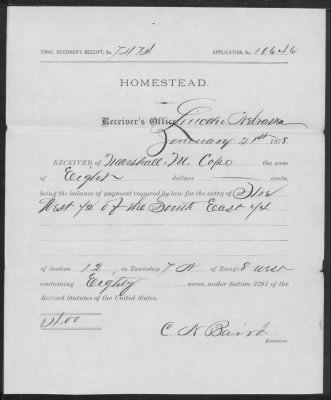 FINAL RECEIVER'S RECEIPT, No. APPLICATION, No. 10646
HOMESTEAD.
Receiver's Office, Lincoln Nebraska
January 21st, 1878
RECEIVED of Marshall M. Cope the sum
of Eight dollars cents,
being the balance of payment required by law for the entry of The
West 1/2 of the South East 1/4
of Section 12, in Township 7 N of Range 8 West
containing Eighty acres, under Section 2291 of the
Revised Statutes of the United States.
C N Baird
Receiver.